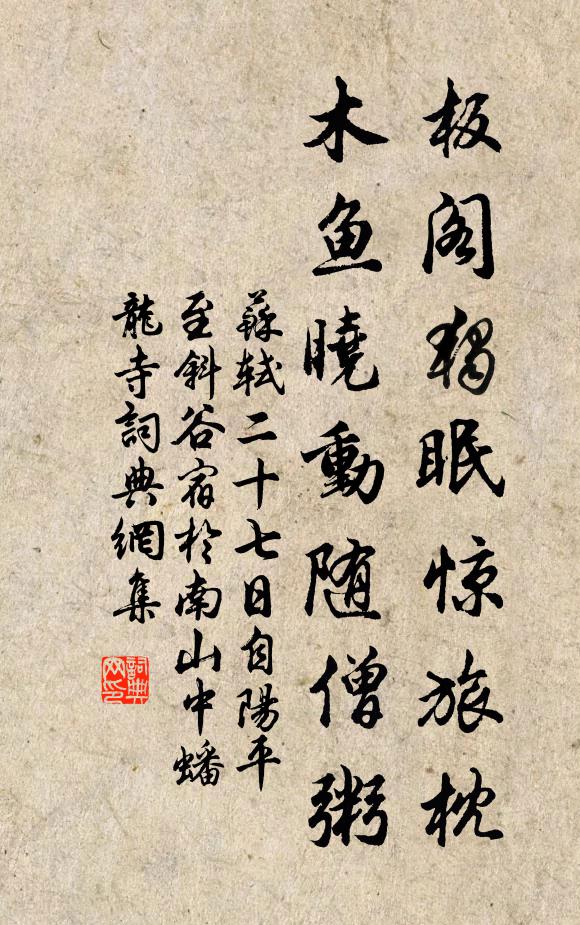 板阁独眠惊旅枕
木鱼曉動随僧粥
蘇軾二十七日自陽平
至斜谷宿於南山中蟠
龍寺詞典網集
詞典
网印